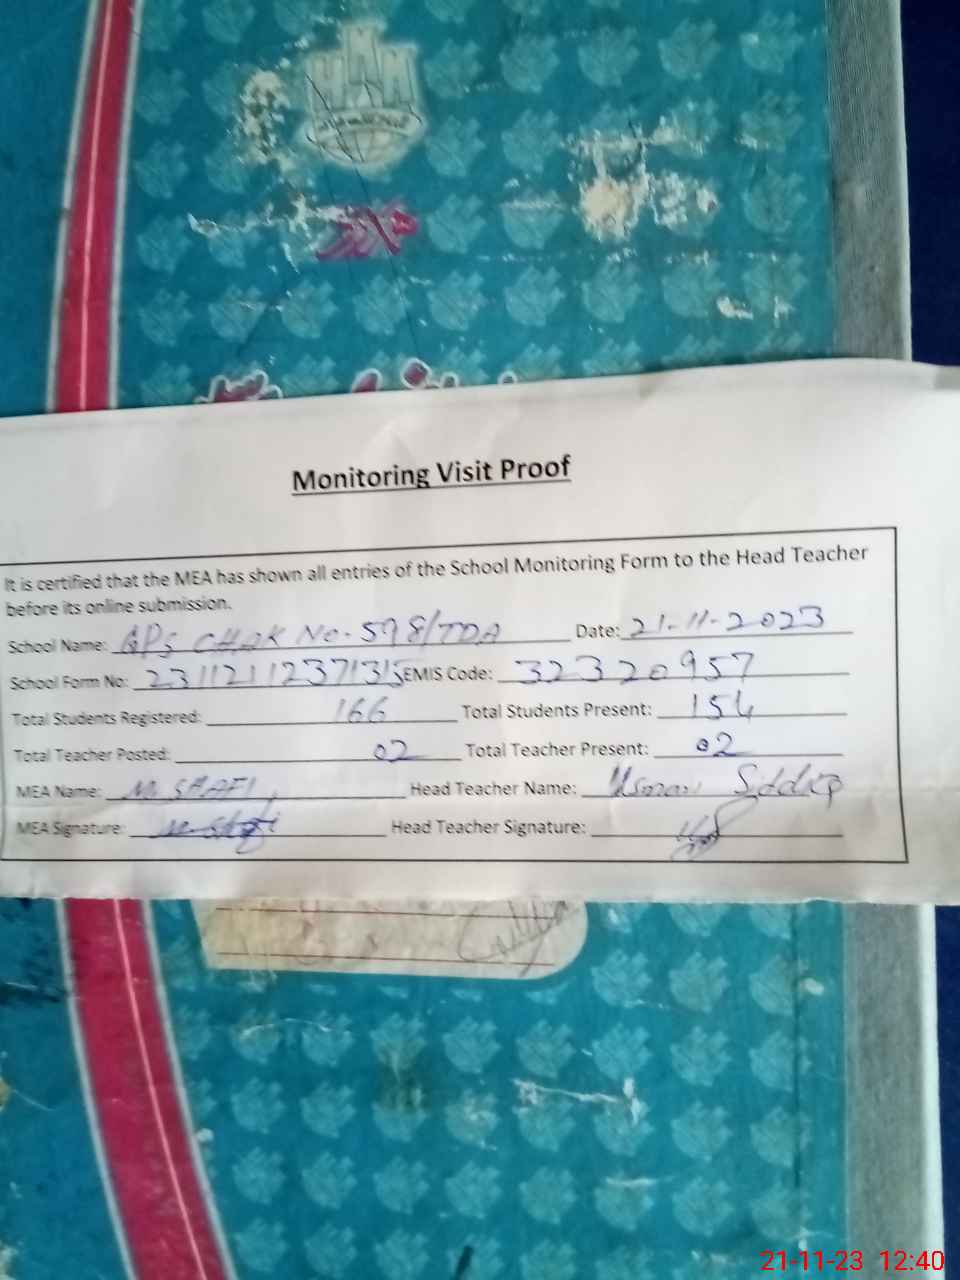 Monitoring Visit Proof
It is certified that the MEA has shown all entries of the School Monitoring Form to the Head Teacher
before its online submission.
School Name: GPS CHAK No-598/TDA Date: 21-11-2023
School Form No: 231121112371315 EMIS Code: 32320957
Total Students Registered: 166 Total Students Present: 154
Total Teacher Posted: 02 Total Teacher Present: 02
MEA Name: M. SHAFI Head Teacher Name: Usman Siddiq
MEA Signature: Head Teacher Signature:
21-11-23 12:40